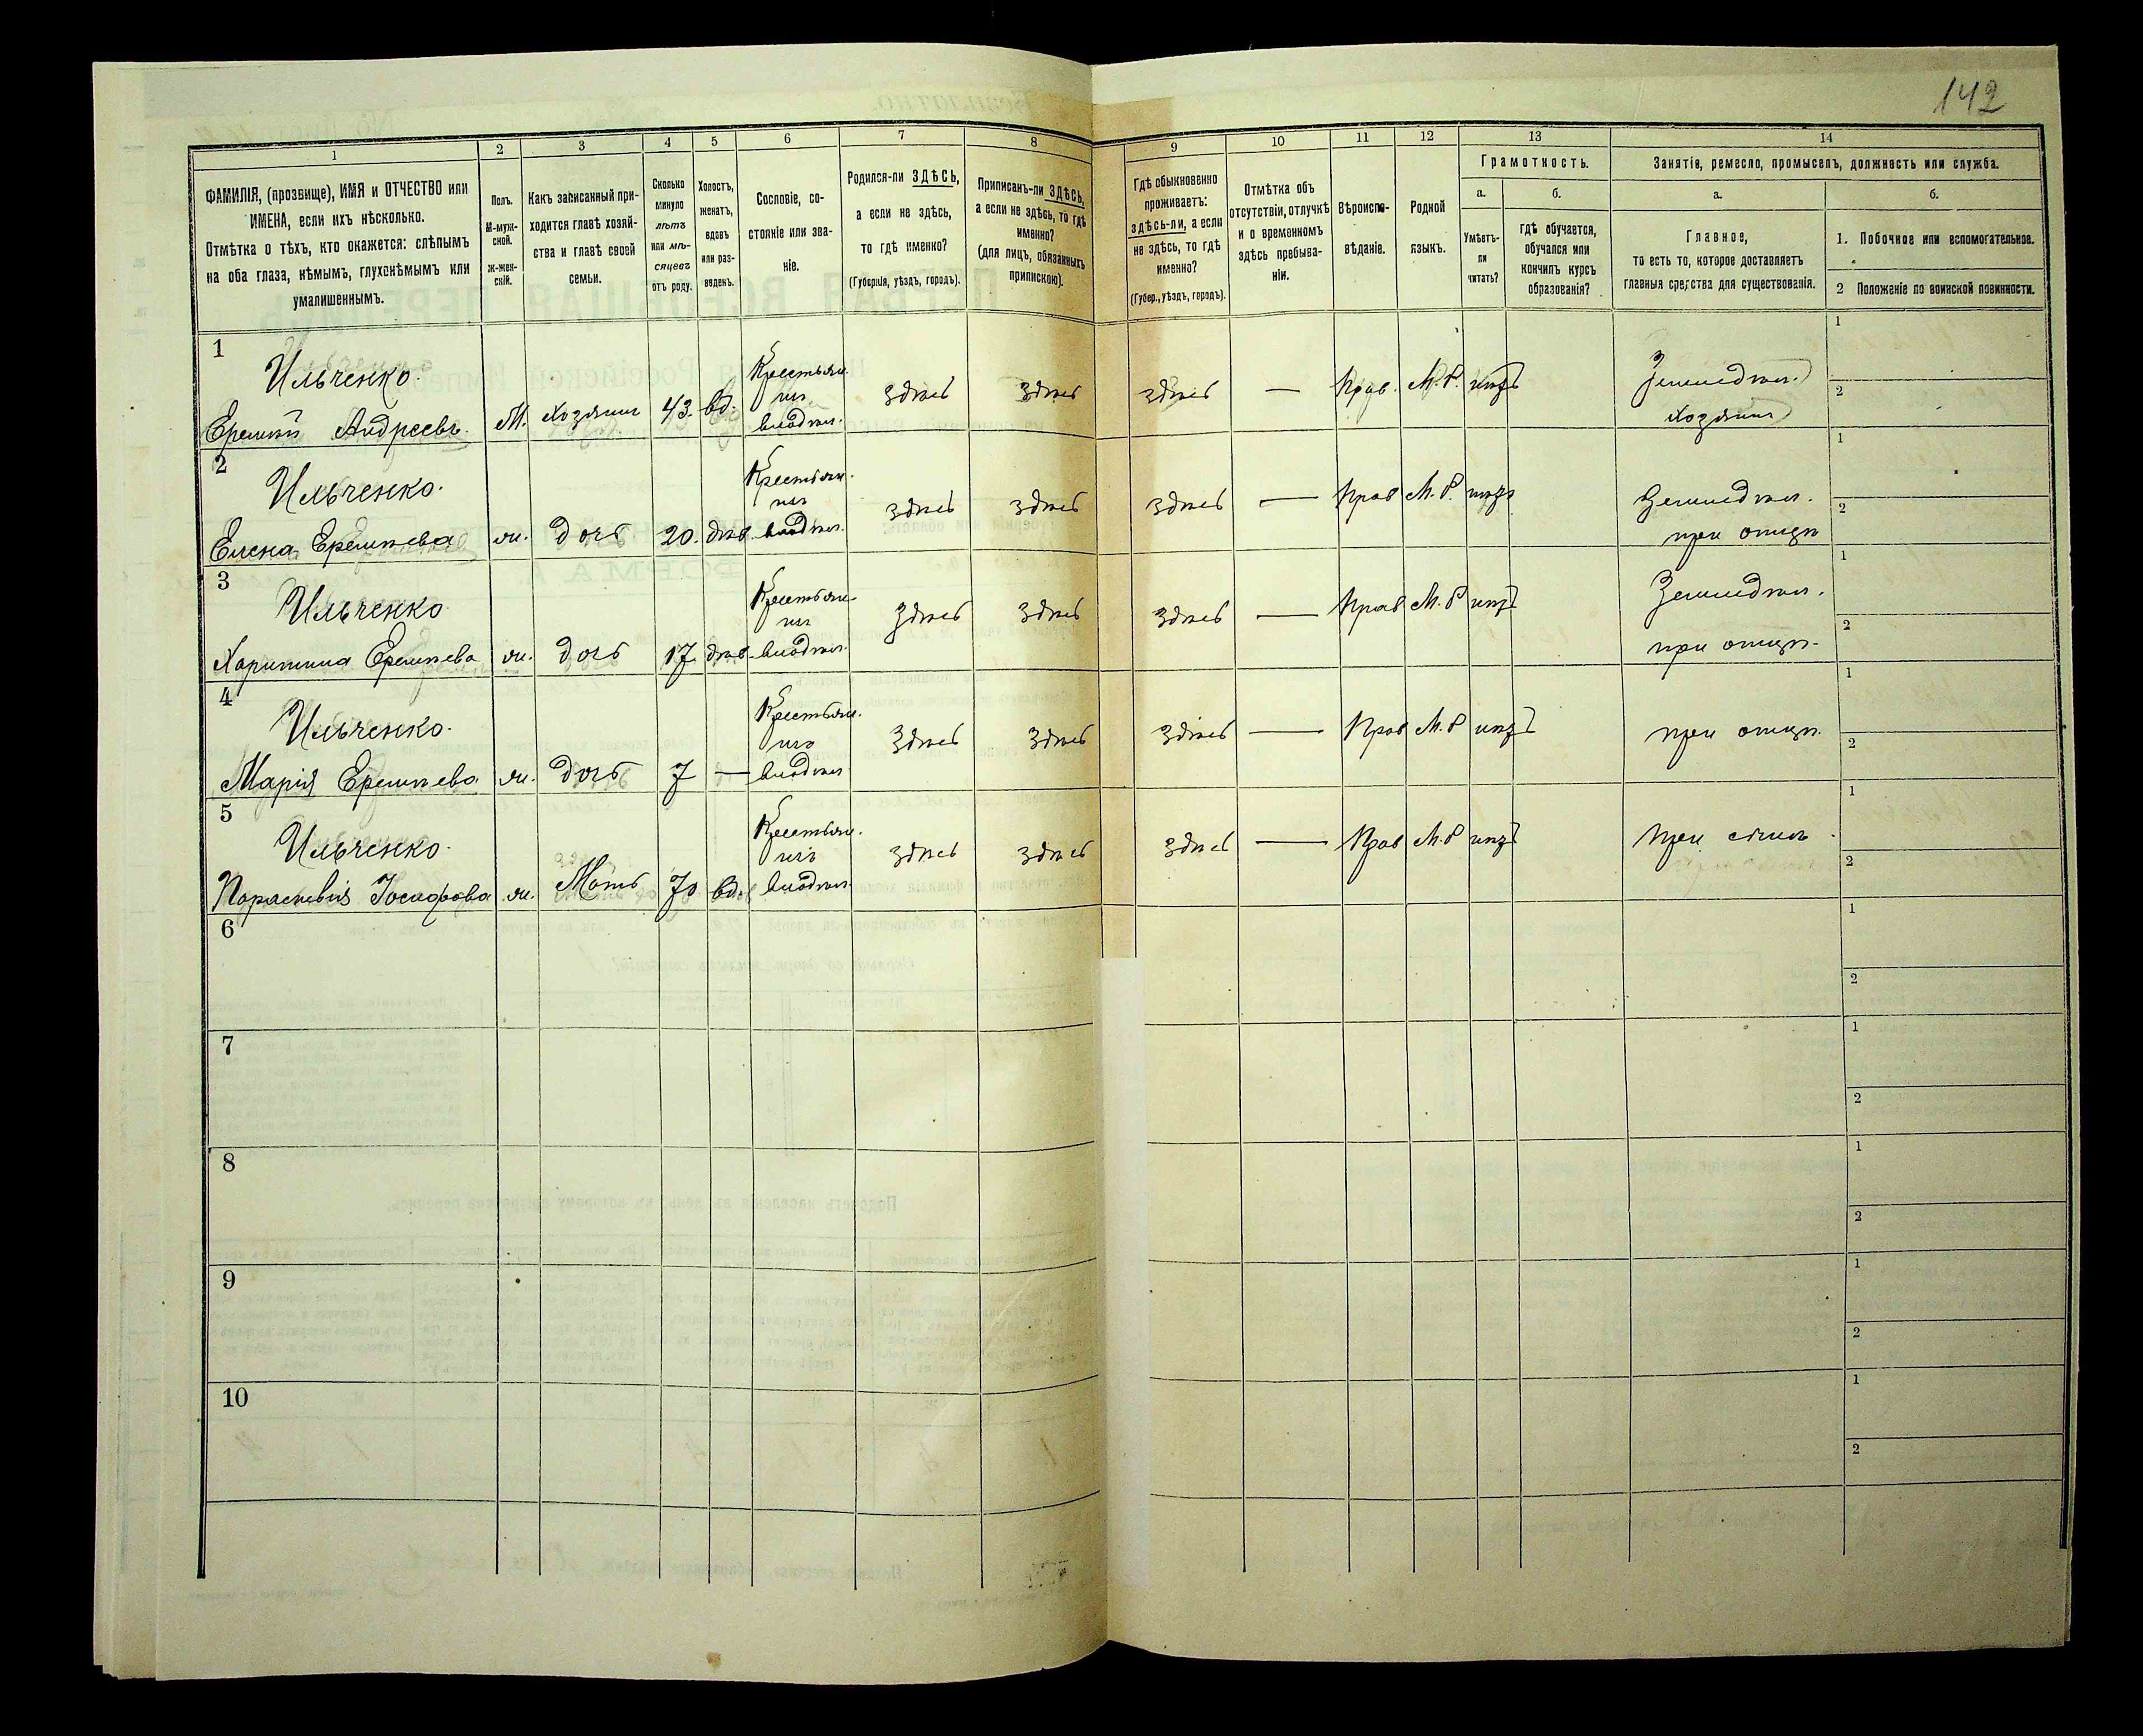 142
1 2 3 4 5 6 7 8 9 10 11 12 13 14
ФАМИЛІЯ, (прозвище), ИМЯ и ОТЧЕСТВО или
ИМЕНА, если ихъ нѣсколько.
Отмѣтка о тѣхъ, кто окажется: слѣпымъ
на оба глаза, нѣмымъ, глухонѣмымъ или
умалишеннымъ.
Полъ.
М-муж-
ской.
ж-жен-
скій.
Какъ записанный при-
ходится главѣ хозяй-
ства и главѣ своей
семьи.
Сколько
минуло
лѣтъ
или мѣ-
сяцевъ
отъ роду.
Холостъ,
женатъ,
вдовъ
или раз-
веденъ.
Сословіе, со-
стояніе или зва-
ніе.
Родился-ли ЗДѢСЬ,
а если не здѣсь,
то гдѣ именно?
(Губернія, уѣздъ, городъ).
Приписанъ-ли ЗДѢСЬ,
а если не здѣсь, то гдѣ
именно?
(для лицъ, обязанныхъ
припискою).
Гдѣ обыкновенно
проживаетъ:
здѣсь-ли, а если
не здѣсь, то гдѣ
именно?
(Губер., уѣздъ, городъ).
Отмѣтка объ
отсутствіи, отлучкѣ
и о временномъ
здѣсь пребыва-
ніи.
Вѣроиспо-
вѣданіе.
Родной
языкъ.
Грамотность.
а.
Умѣетъ-
ли
читать?
б.
гдѣ обучается,
обучался или
кончилъ курсъ
образованія?
Занятія, ремесло, промыселъ, должность или служба.
а.
Главное,
то есть то, которое доставляетъ
главныя средства для существованія.
б.
1. Побочное или вспомогательное.
2 Положеніе по воинской повинности.
1
Ильченко.
Еремій Андреевъ. М. Хозяинъ 43. вд.
Крестьян.
изъ
владѣл.
здѣсь здѣсь здѣсь — Прав. М.Р. нѣтъ
Земледѣл.
Хозяинъ
1
2
2
Ильченко.
Елена Еремѣева ж. дочь 20. дѣв.
Крестьян.
изъ
владѣл.
здѣсь здѣсь здѣсь — Прав М.Р. нѣтъ
Земледѣл.
при отцѣ
1
2
3
Ильченко
Харитина Еремѣева ж. дочь 17 дѣв.
Крестьян
изъ
владѣл.
здѣсь здѣсь здѣсь — Прав М.Р нѣтъ
Земледѣл.
при отцѣ.
1
2
4
Ильченко.
Марія Еремѣева ж. дочь 7 —
Крестьян.
изъ
владѣл
здѣсь здѣсь здѣсь — Прав М.Р нѣтъ
при отцѣ.
1
2
5
Ильченко.
Параскевія Іосафова ж. Мать 70 вд.
Крестьян.
изъ
владѣл
здѣсь здѣсь здѣсь — Прав М.Р нѣтъ
при
1
2
6
1
2
7
1
2
8
1
2
9
1
2
10
1
2